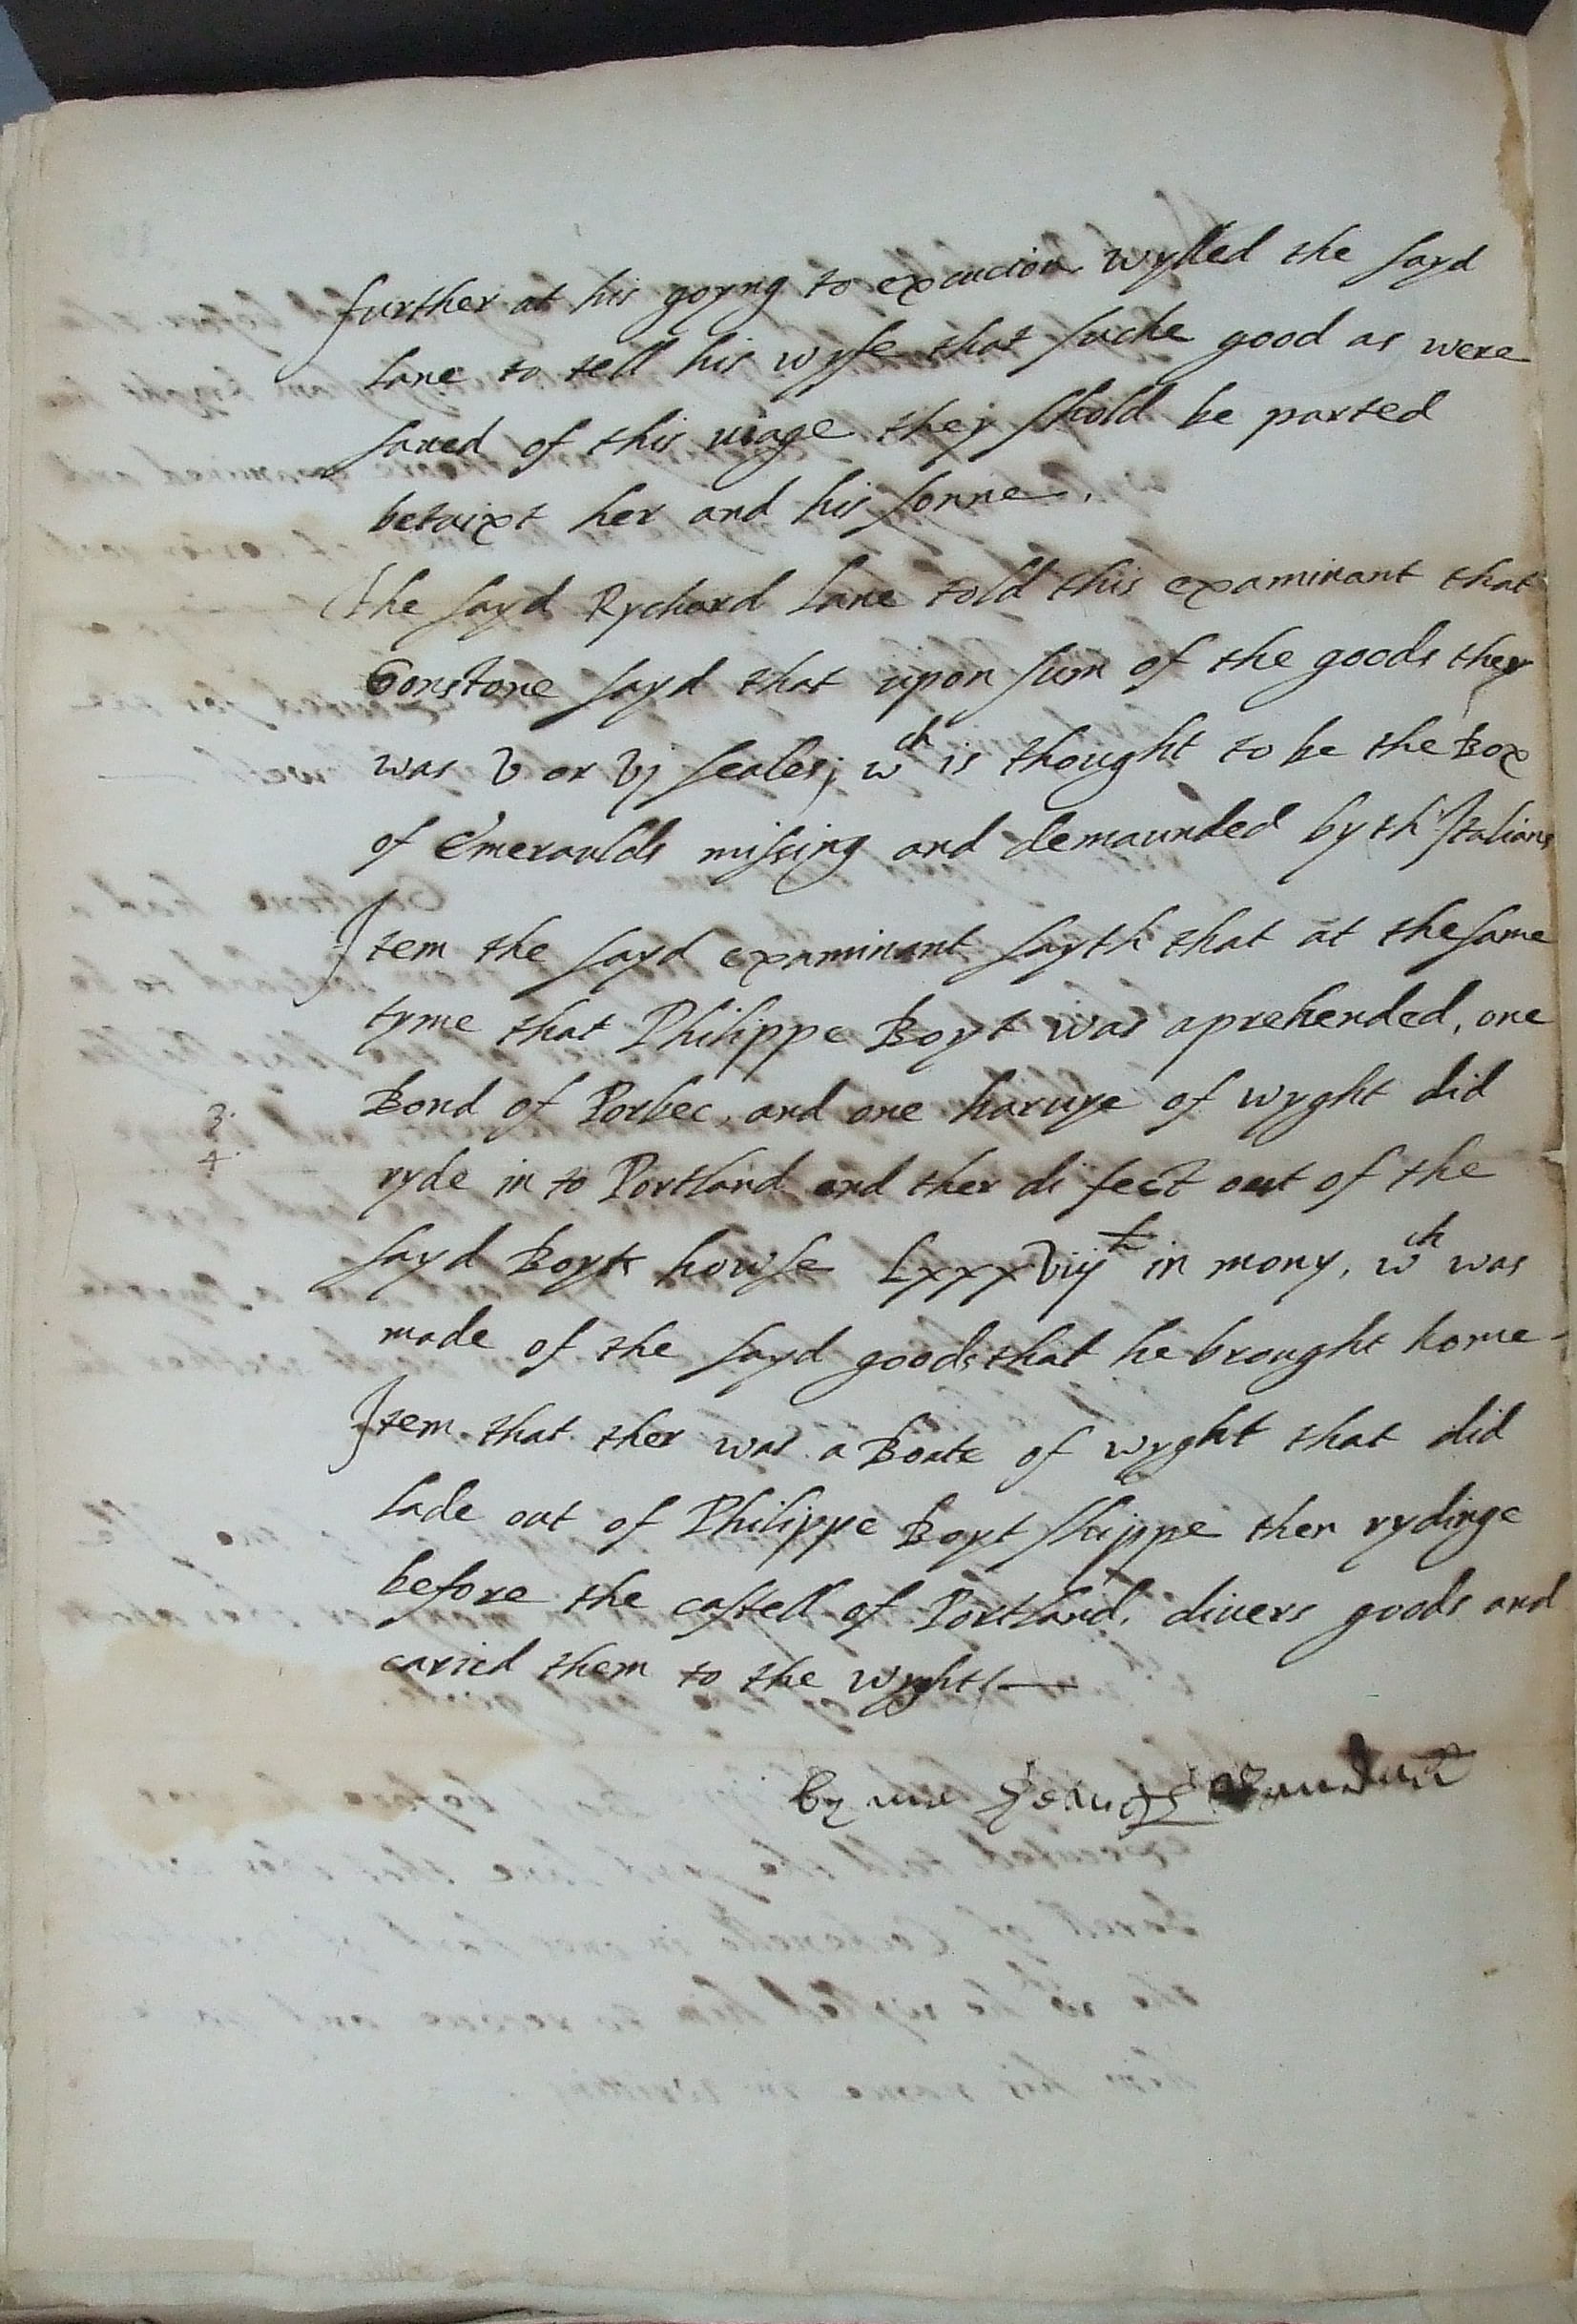 further at his goyng to execucion wylled the sayd
Lane to tell his wyfe that suche good as were
saved of this viage they shold be parted
betwixt her and his sonne.
The sayd Rychard Lane told this examinant that
Gonstone sayd that upon sum of the goods ther
was v or vj seales; wch is thought to be the Box
of Emeraulds missing and demaunded by th' Italians
Item the sayd examinant sayth that at the same
tyme that Philippe Boyt was aprehended, one
Bond of Porbec, and one harvye of wyght did
3.
4.
ryde in to Portland and ther di fect out of the
sayd Boyts howse Lxxxviij li in mony, wch was
made of the sayd goods that he brought home
Item that ther was a Boate of wyght that did
lade out of Philippe Boyt shippe then rydinge
before the castell of Portland, divers goods and
caried them to the wyght
by me